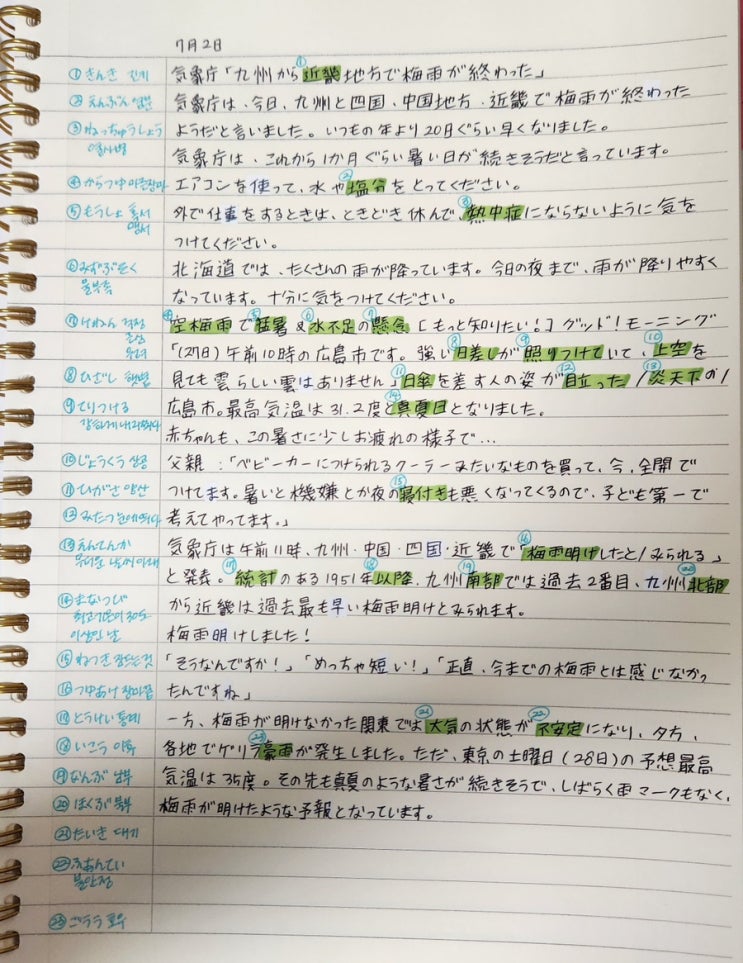 7月2日
① きんき 긴키
気象庁「九州から近畿地方で梅雨が終わった」
② えんぶん 염분
気象庁は、今日、九州と四国、中国地方、近畿で梅雨が終わった
③ ねっちゅうしょう
ようだと言いました。いつもの年より20日ぐらい早くなりました。
열사병
気象庁は、これから1か月ぐらい暑い日が続きそうだと言っています。
④ からつゆ 마른장마
エアコンを使って、水や塩分をとってください。
⑤ もうしょ 혹서
外で仕事をするときは、ときどき休んで、熱中症にならないように気を
つけてください。
⑥ みずぶそく
北海道では、たくさんの雨が降っています。今日の夜まで、雨が降りやすく
물부족
なっています。十分に気をつけてください。
⑦ けねん 걱정
空梅雨で猛暑&水不足の懸念[もっと知りたい!]グッド!モーニング
근심
우려
「(27日)午前10時の広島市です。強い日差しが照りつけていて、上空を
⑧ ひざし 햇볕
見ても雲らしい雲はありません」日傘を差す人の姿が目立った/炎天下の/
⑨ てりつける
広島市。最高気温は31.2度と真夏日となりました。
赤ちゃんも、この暑さに少しお疲れの様子で…
⑩ じょうくう 상공
父親:「ベビーカーにつけられるクーラーみたいなものを買って、今、全開で
⑪ ひがさ 양산
つけてます。暑いと機嫌とか夜の寝付きも悪くなってくるので、子ども第一で
⑫
考えてやってます。」
⑬ えんてんか
気象庁は午前11時、九州・中国・四国・近畿で「梅雨明けしたと/みられる」
と発表。統計のある1951年以降、九州南部では過去2番目、九州北部
⑭ まなつび
から近畿は過去最も早い梅雨明けとみられます。
최고기온이 30도
이상인 날
梅雨明けしました!
⑮ ねつき 잠드는것
「そうなんですか!」「めっちゃ短い!」「正直、今までの梅雨とは感じなかっ
⑯ つゆあけ 장마끝
たんですね」
⑰ とうけい 통계
一方、梅雨が明けなかった関東では大気の状態が不安定になり、夕方、
⑱ いこう 이후
各地でゲリラ豪雨が発生しました。ただ、東京の土曜日(28日)の予想最高
⑲ なんぶ 남부
気温は35度。その先も真夏のような暑さが続きそうで、しばらく雨マークもなく、
⑳ ほくぶ 북부
梅雨が明けたような予報となっています。
㉑ たいき 대기
㉒ ふあんてい
불안정
㉓ ごうう 호우